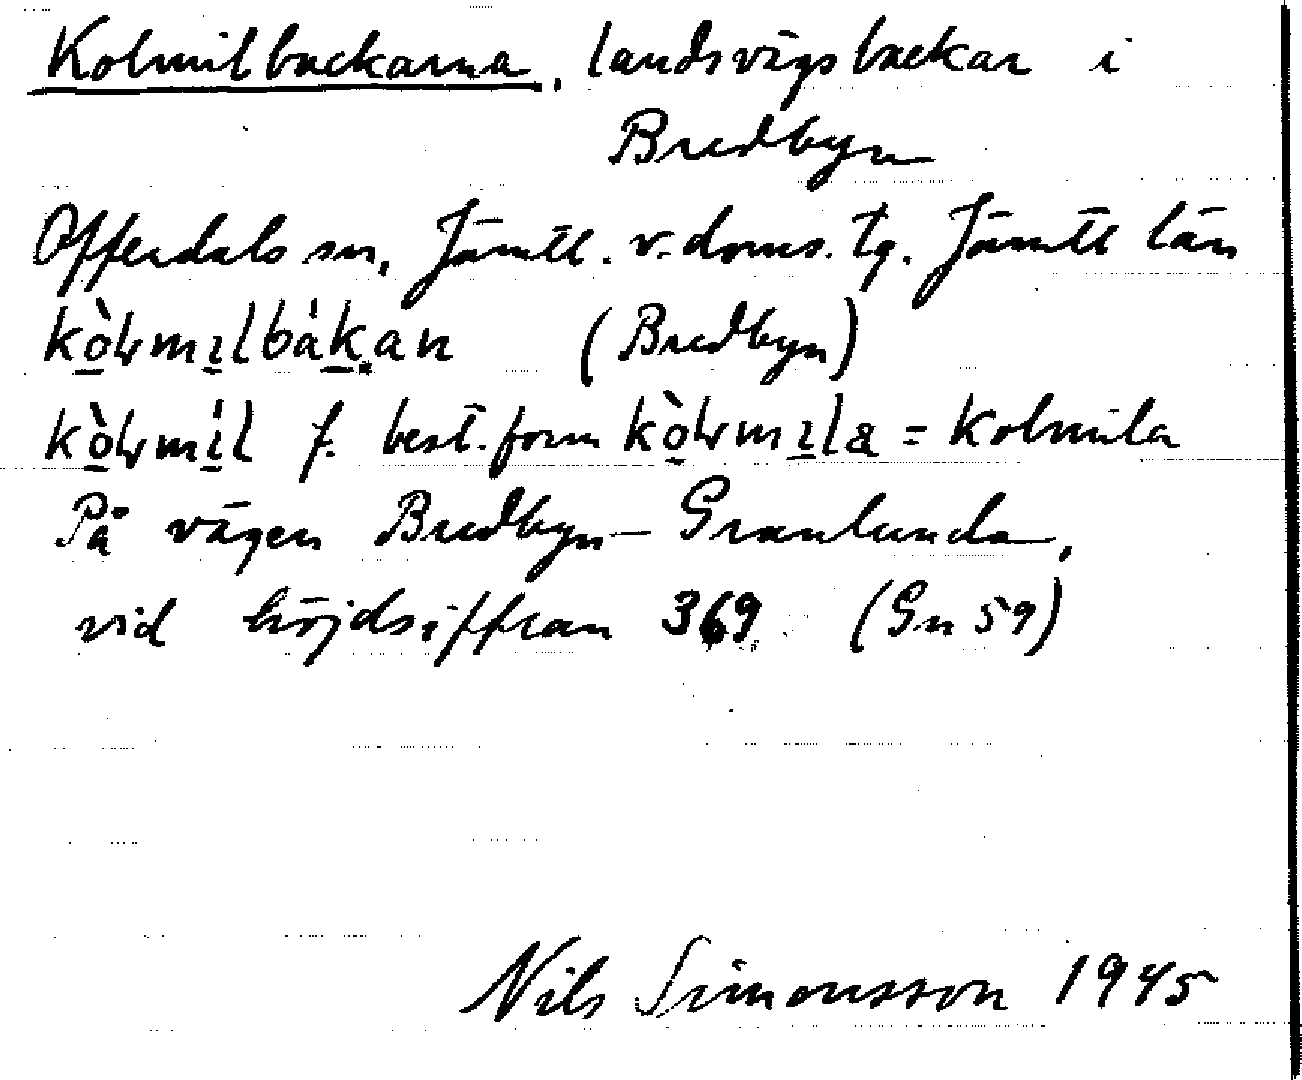 Kolmilbackarna, landsvägsbackar i
Bredbyn
Offerdals sn, Jämtl. v. doms. tg. Jämtl län
kò̠lvmi̠lbák̠.an (Bredbyn)
kò̠lvmí̠l f. best. form kò̠lvmi̠la = Kolmila
På vägen Bredbyn – Granlunda,
vid höjdsiffran 369 (Gn 59)
Nils Simonsson 1945